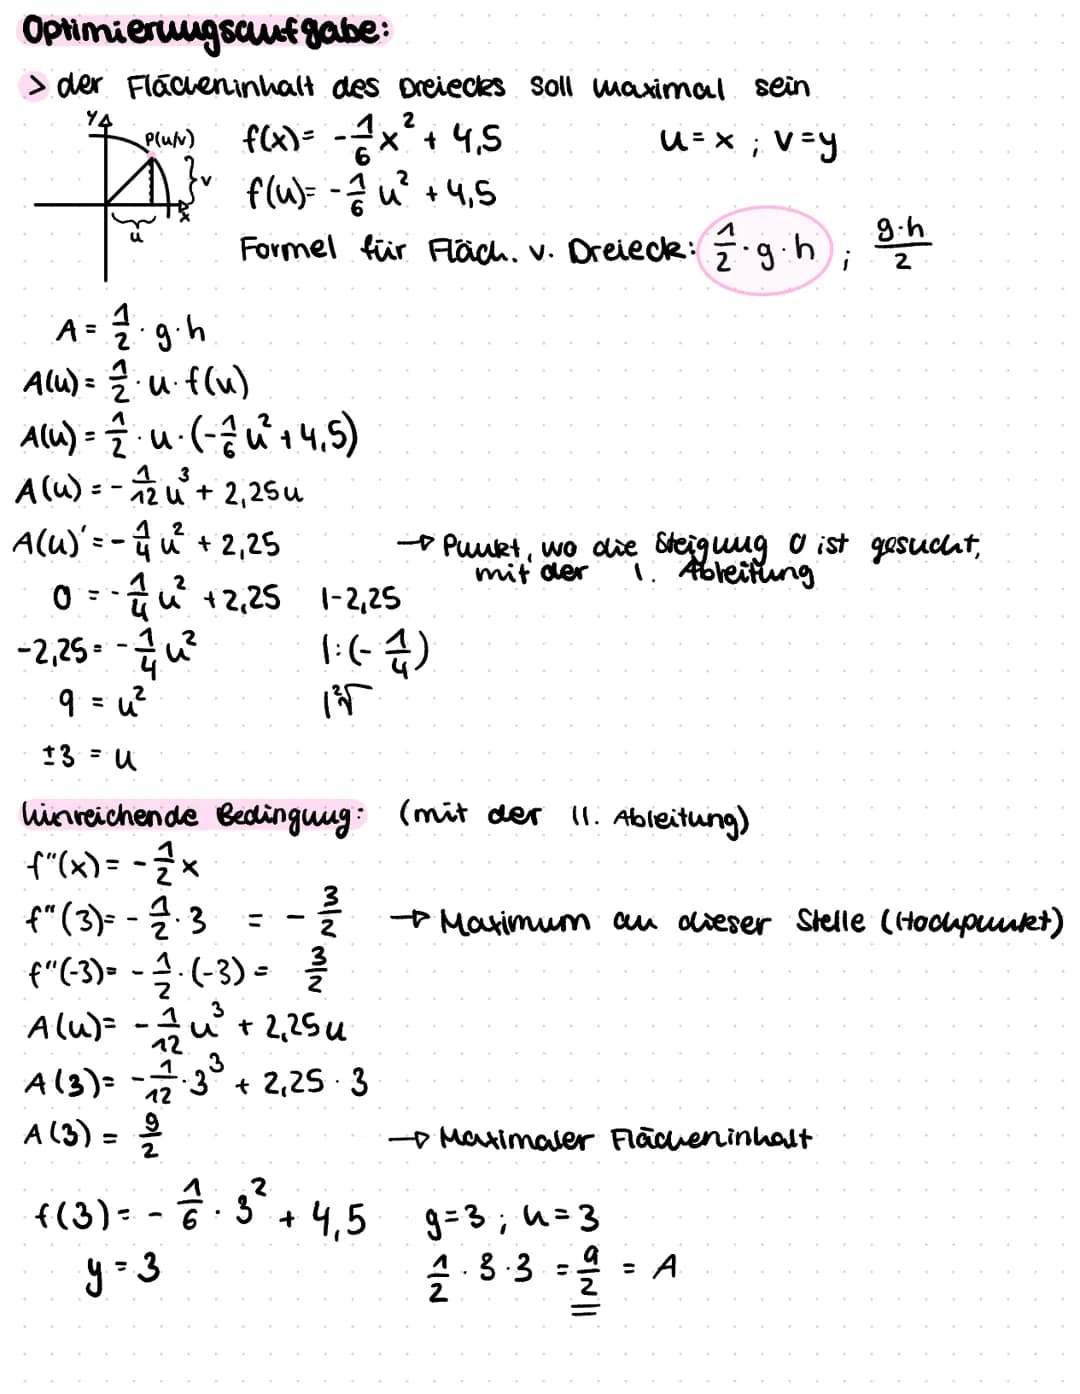 Optimierungsaufgabe:
> der Flächeninhalt des Dreiecks soll maximal sein
y
P(u/v)
v
x
u
f(x)= -1/6 x² + 4,5
u=x ; v=y
f(u)= -1/6 u² + 4,5
Formel für Fläch. v. Dreieck: 1/2 · g · h ; g·h/2
A = 1/2 · g·h
A(u) = 1/2 · u · f(u)
A(u) = 1/2 · u · (-1/6 u² + 4,5)
A(u) = - 1/12 u³ + 2,25u
A(u)' = - 1/4 u² + 2,25 → Punkt, wo die Steigung 0 ist gesucht,
mit der 1. Ableitung
0 = - 1/4 u² + 2,25 |-2,25
-2,25 = - 1/4 u² |:(- 1/4)
9 = u² |²√
±3 = u
hinreichende Bedingung: (mit der II. Ableitung)
f"(x) = - 1/2 x
f"(3)= - 1/2 · 3 = - 3/2 → Maximum an dieser Stelle (Hochpunkt)
f"(-3)= - 1/2 · (-3) = 3/2
A(u)= - 1/12 u³ + 2,25u
A(3)= - 1/12 · 3³ + 2,25 · 3
A(3) = 9/2 → Maximaler Flächeninhalt
f(3) = - 1/6 · 3² + 4,5 g=3 ; h=3
y = 3 1/2 · 3 · 3 = 9/2 = A